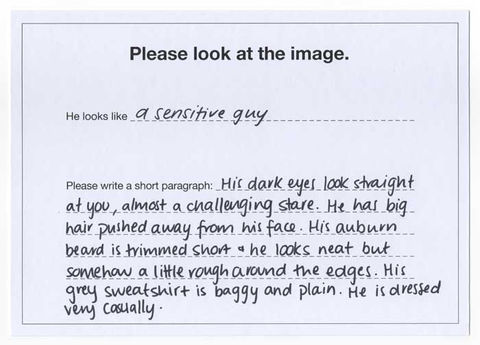 Please look at the image.
He looks like a sensitive guy
Please write a short paragraph: His dark eyes look straight
at you, almost a challenging stare. He has big
hair pushed away from his face. His auburn
beard is trimmed short & he looks neat but
somehow a little rough around the edges. His
grey sweatshirt is baggy and plain. He is dressed
very casually.